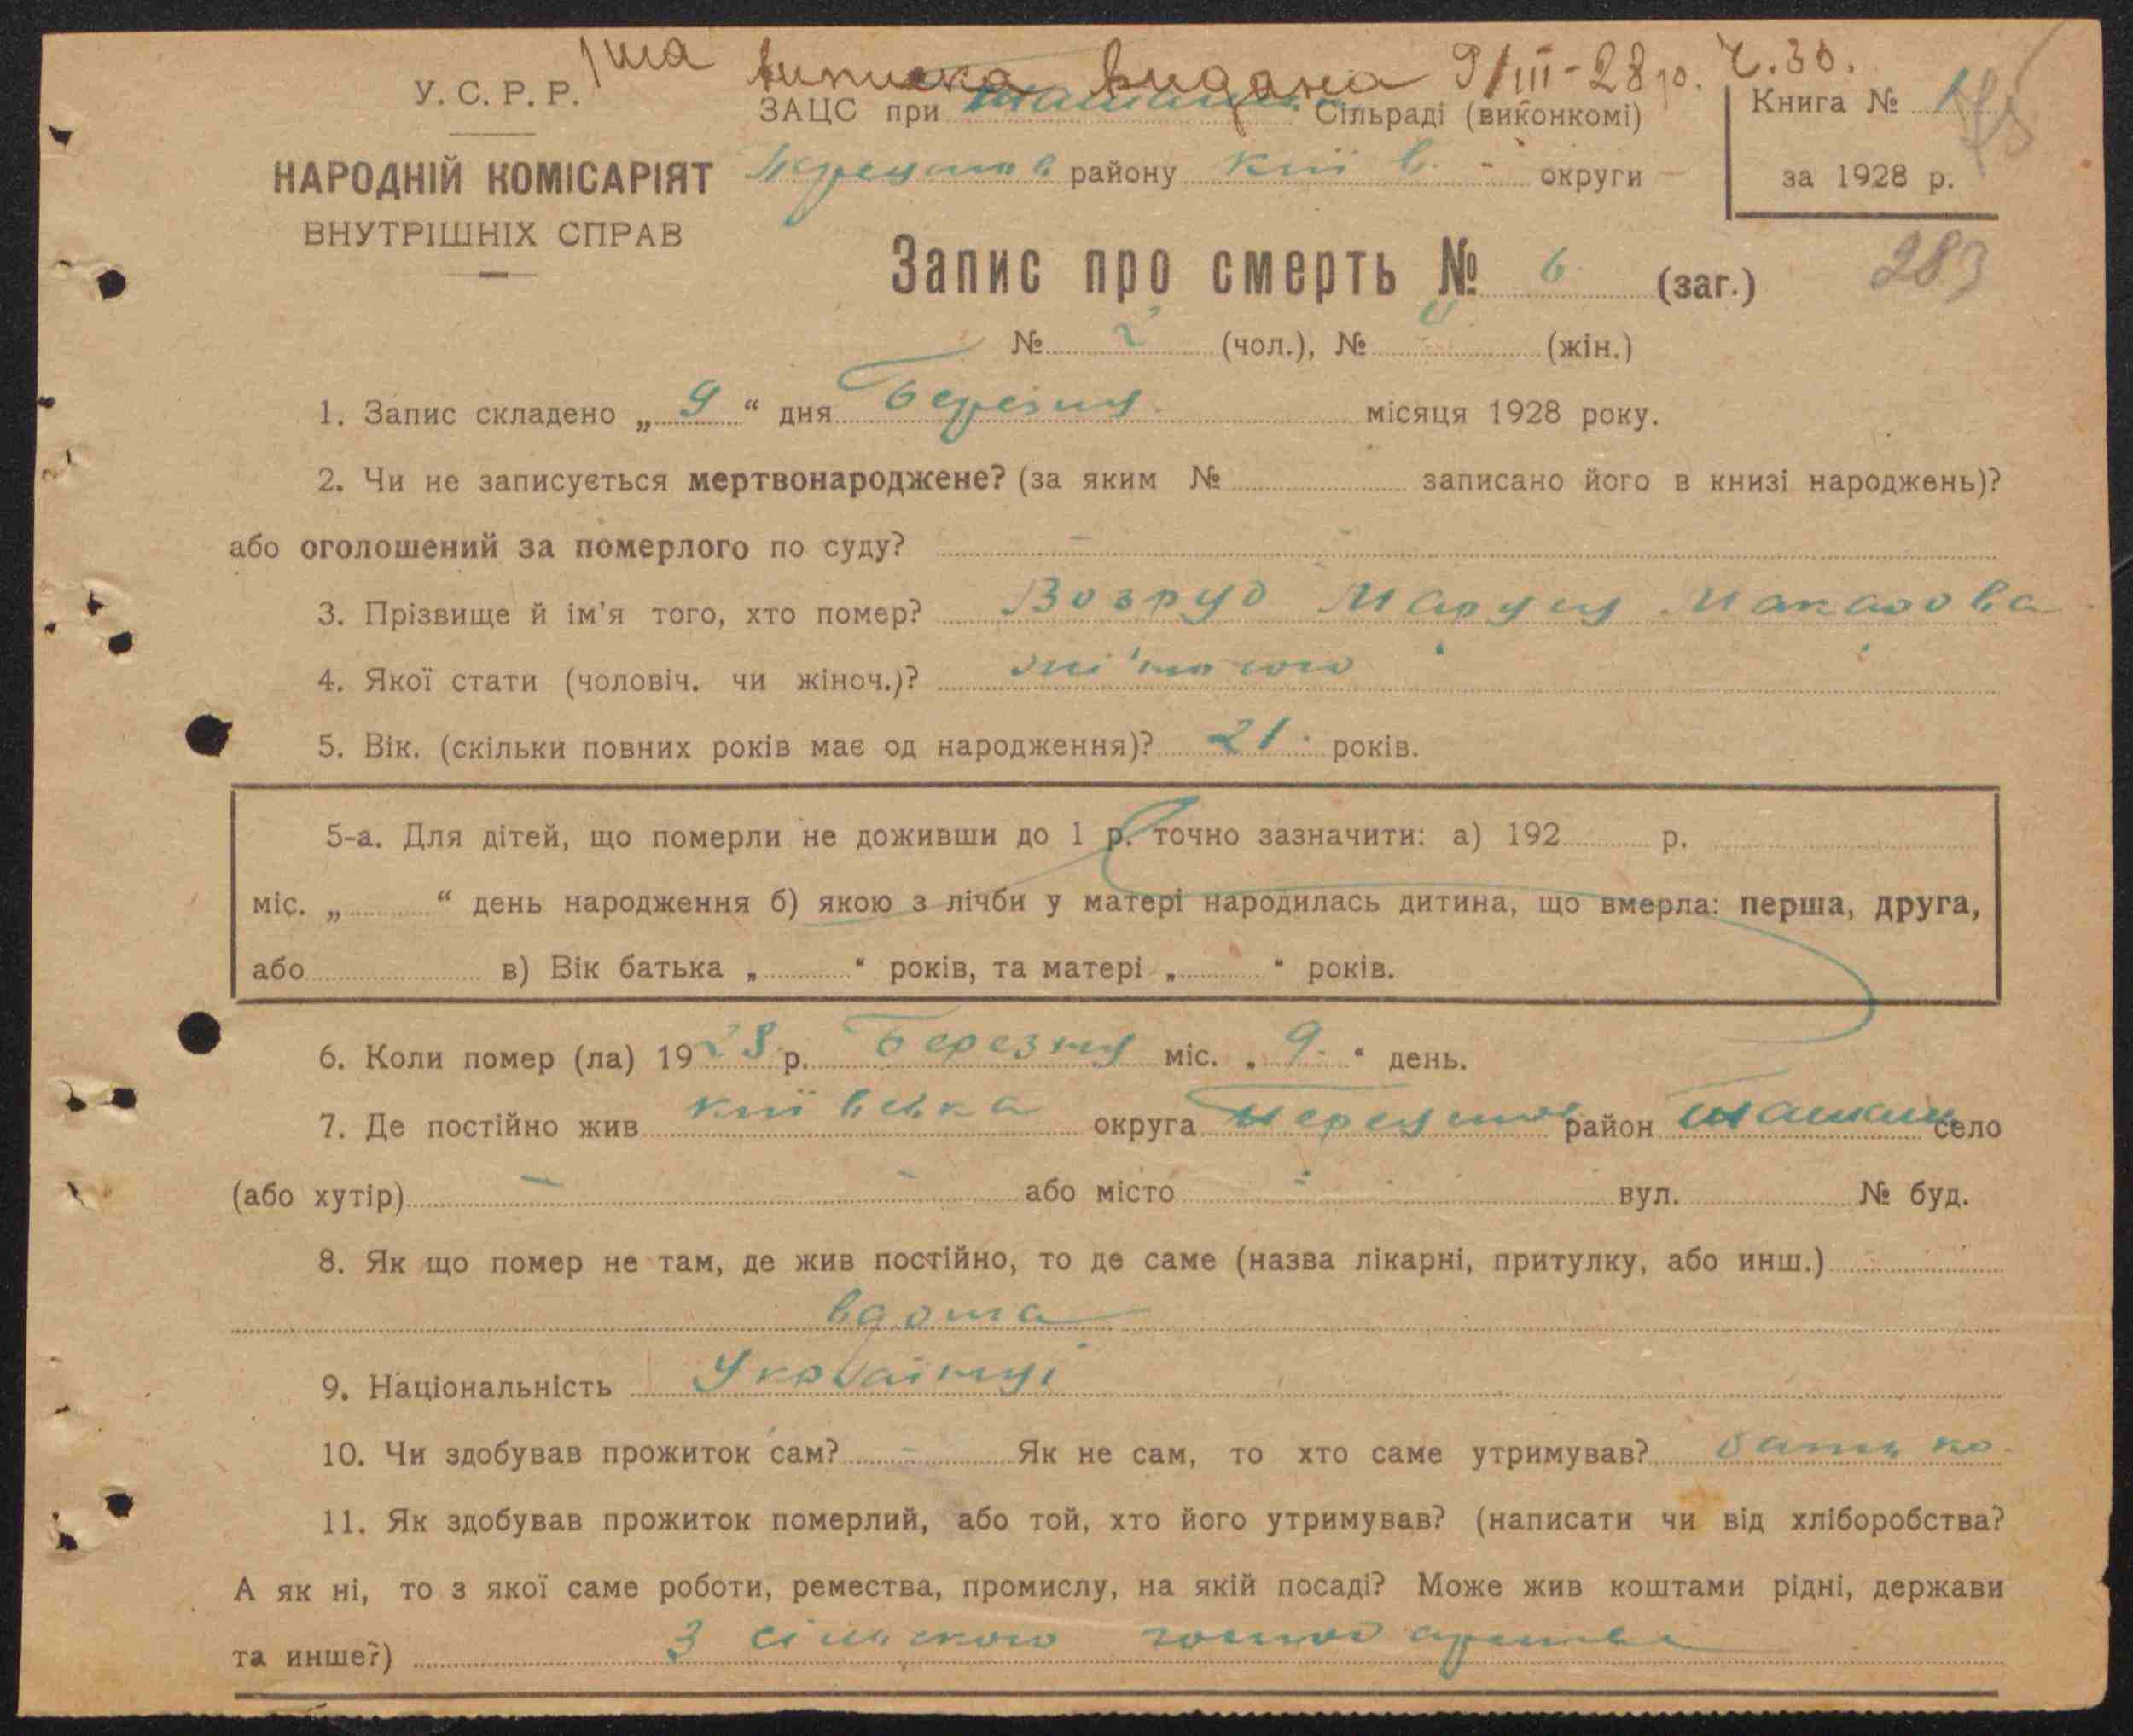 1ша виписка видана 9/III-28 р. Ч. 30.
У. С. Р. Р.
ЗАЦС при Сільраді (виконкомі)
Книга № 1
НАРОДНІЙ КОМІСАРІЯТ
району Київ. округи
за 1928 р.
ВНУТРІШНІХ СПРАВ
Запис про смерть № 6 (заг.)
283
№ 2 (чол.), № (жін.)
1. Запис складено „ 9 “ дня Березня місяця 1928 року.
2. Чи не записується мертвонароджене? (за яким № записано його в книзі народжень)?
або оголошений за померлого по суду? –
3. Прізвище й ім’я того, хто помер? Маруся Макарова
4. Якої стати (чоловіч. чи жіноч.)?
5. Вік. (скільки повних років має од народження)? 21 років.
5-а. Для дітей, що померли не доживши до 1 р. точно зазначити: а) 192 р.
міс. „ “ день народження б) якою з лічби у матері народилась дитина, що вмерла: перша, друга,
або в) Вік батька „ “ років, та матері „ “ років.
6. Коли помер (ла) 1928 р. Березня міс. „ 9 “ день.
7. Де постійно жив Київська округа район село
(або хутір) – – або місто – вул. № буд.
8. Як що помер не там, де жив постійно, то де саме (назва лікарні, притулку, або инш.)
вдома
9. Національність Українці
10. Чи здобував прожиток сам? – Як не сам, то хто саме утримував? батько
11. Як здобував прожиток померлий, або той, хто його утримував? (написати чи від хліборобства?
А як ні, то з якої саме роботи, ремества, промислу, на якій посаді? Може жив коштами рідні, держави
та инше?) З сільского господарства